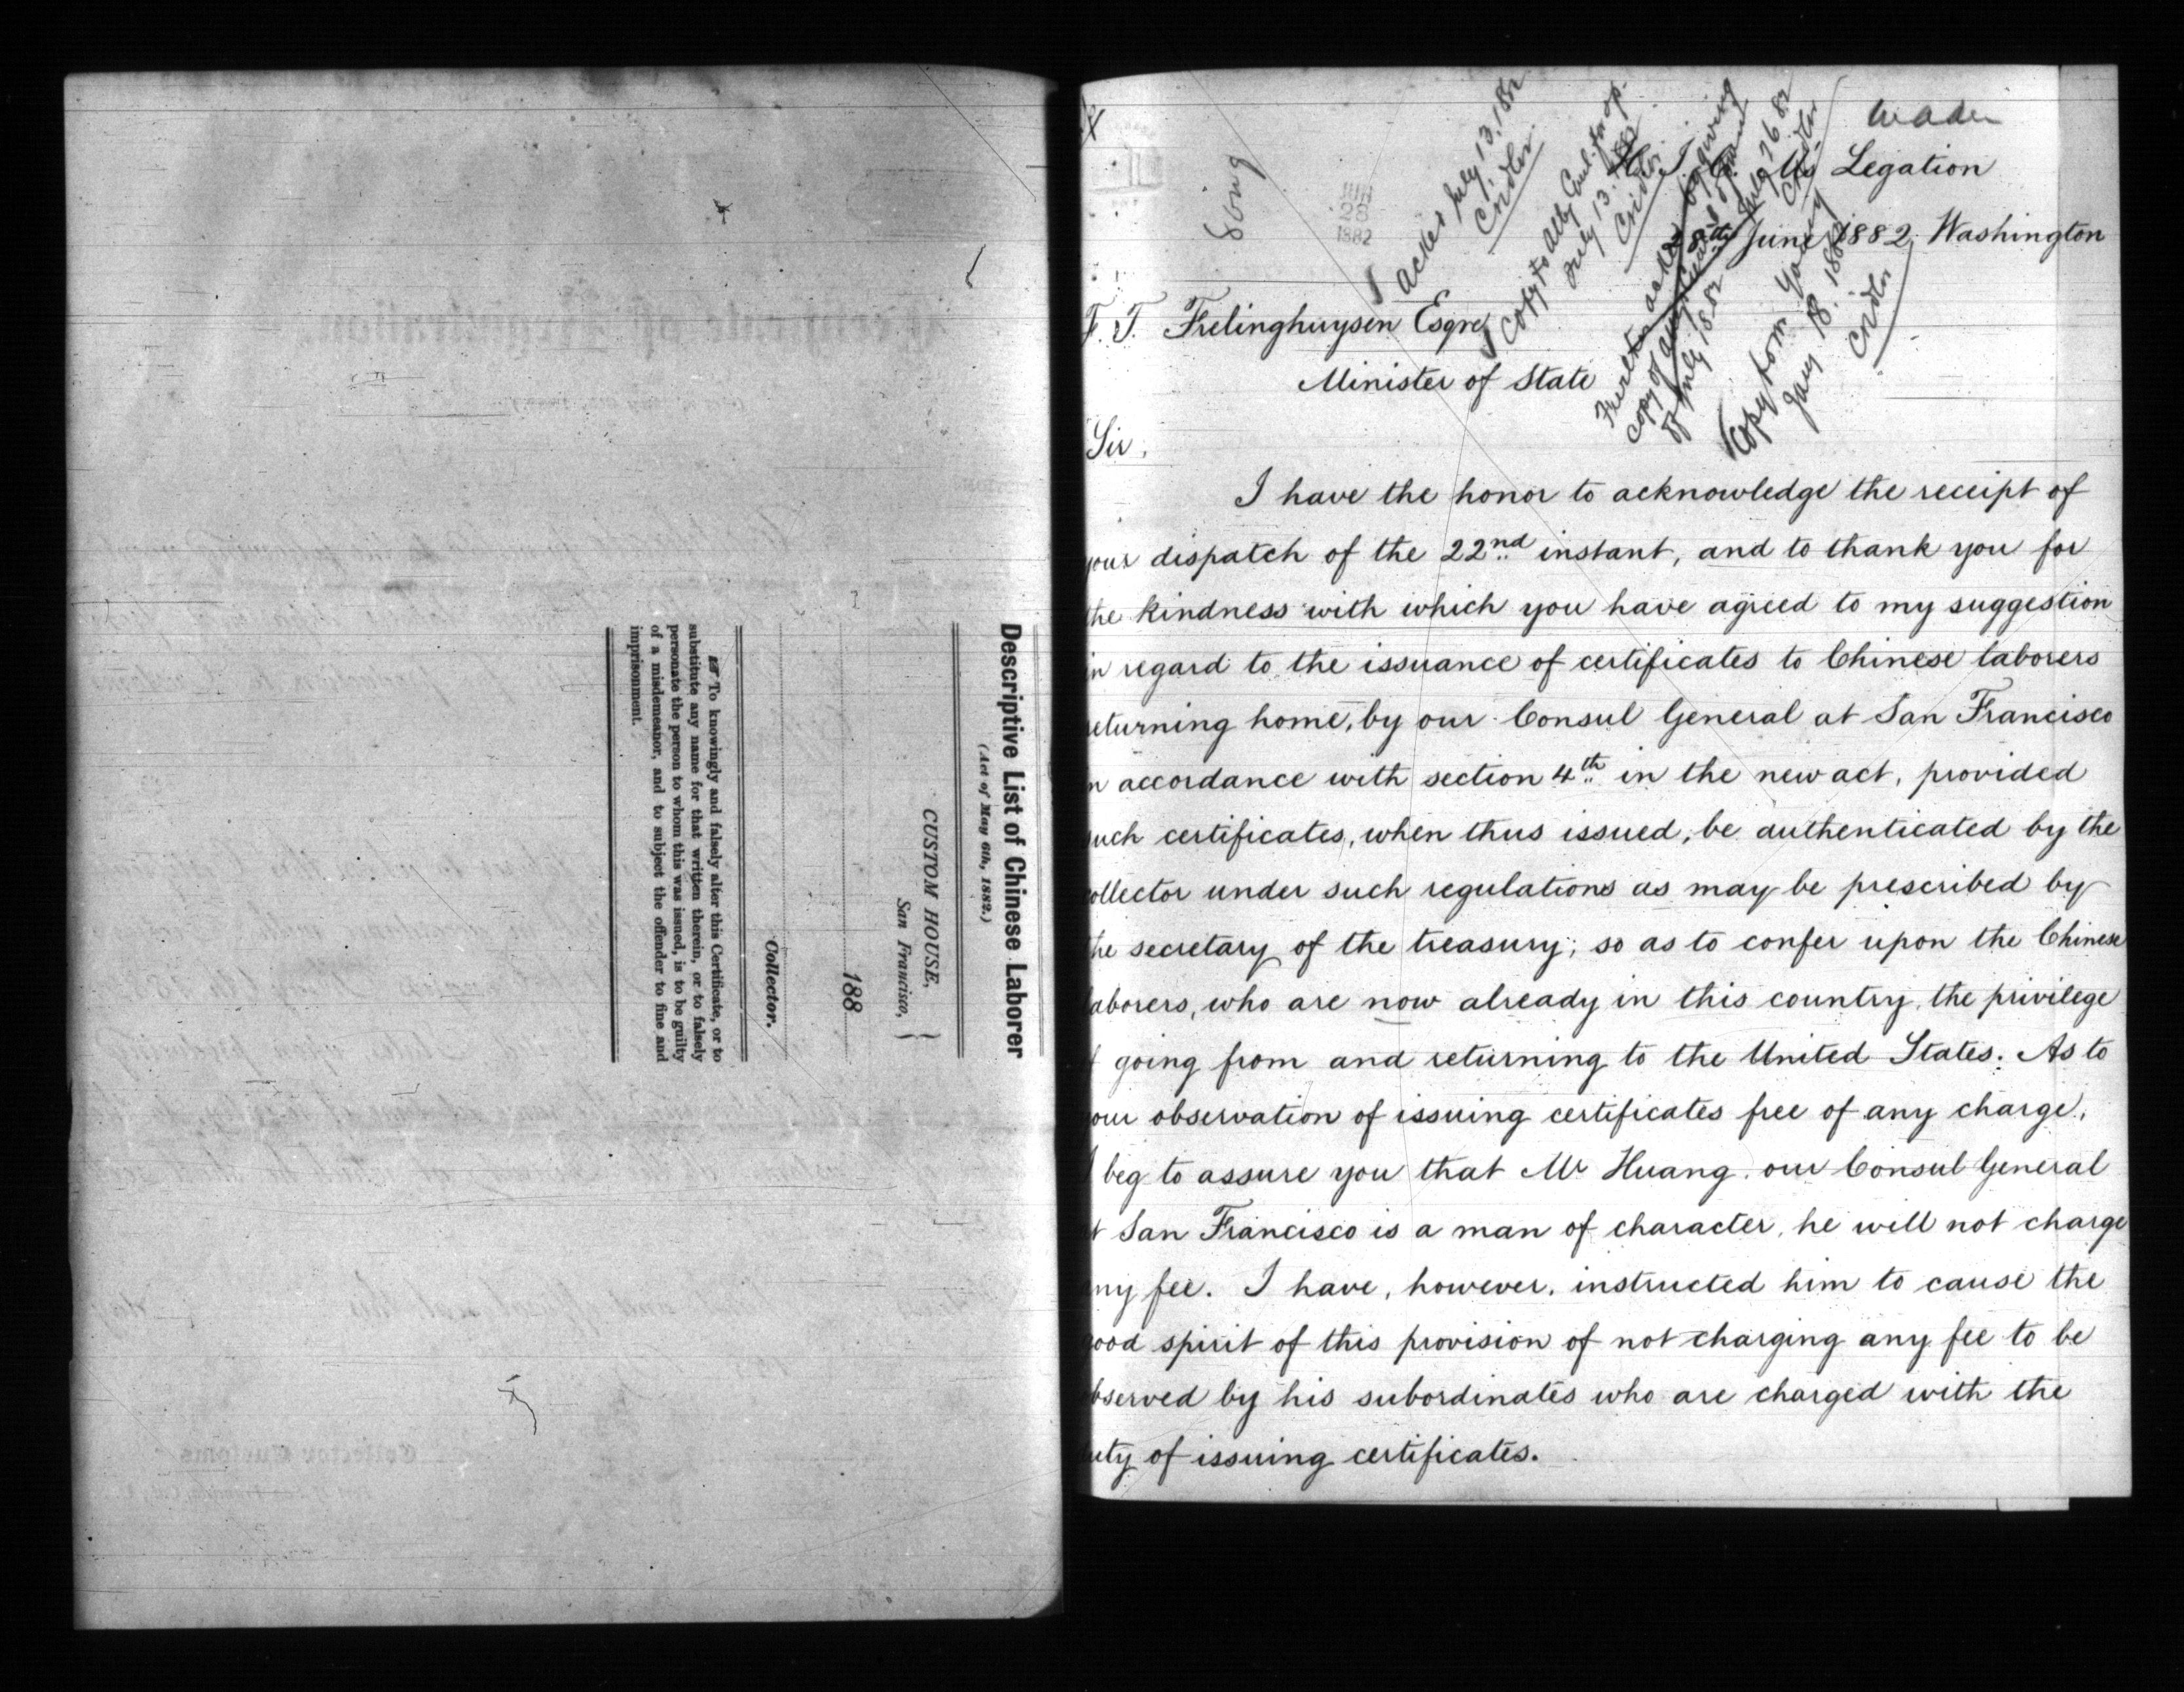 Descriptive List of Chinese Laborer
(Act of May 6th, 1882.)
CUSTOM HOUSE,
San Francisco, }
188
Collector.
☞ To knowingly and falsely alter this Certificate, or to
substitute any name for that written therein, or to falsely
personate the person to whom this was issued, is to be guilty
of a misdemeanor, and to subject the offender to fine and
imprisonment.
JUN
28
1882
Ackd July 13. 1882
Cridler
Copy to
July 13. 1882
Cridler
copy of
of July 1882
Copy to
Jany 18. 188
Cridler
H. I. C. Ms Legation
28th June 1882. Washington
F. T. Frelinghuysen Esqre
Minister of State
Sir,
I have the honor to acknowledge the receipt of
your dispatch of the 22nd instant, and to thank you for
the kindness with which you have agreed to my suggestion
in regard to the issuance of certificates to Chinese laborers
returning home, by our Consul General at San Francisco
in accordance with section 4th in the new act, provided
such certificates, when thus issued, be authenticated by the
collector under such regulations as may be prescribed by
the secretary of the treasury; so as to confer upon the Chinese
laborers, who are now already in this country, the privilege
of going from and returning to the United States. As to
your observation of issuing certificates free of any charge,
I beg to assure you that Mr Huang, our Consul General
at San Francisco is a man of character, he will not charge
any fee. I have, however, instructed him to cause the
good spirit of this provision of not charging any fee to be
observed by his subordinates who are charged with the
duty of issuing certificates.